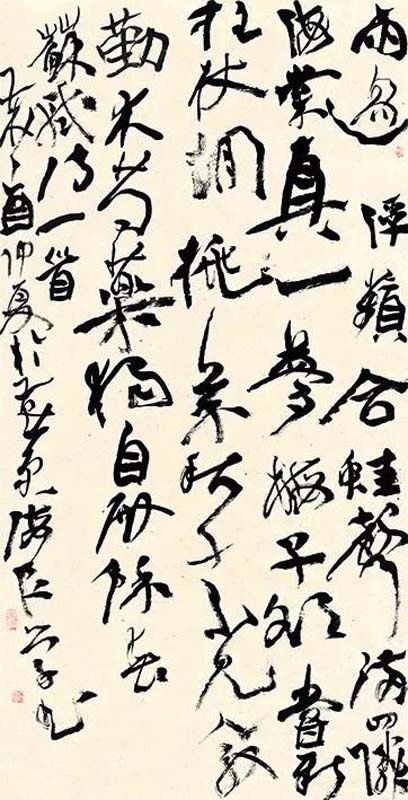 雨過浮蘋合蛙聲滿四鄰
海棠真一夢梅子欲嘗新
拄杖閒挑菜秋千不見人殷
勤木芍藥獨自殿餘春
蘇軾詩一首
酉仲夏於京